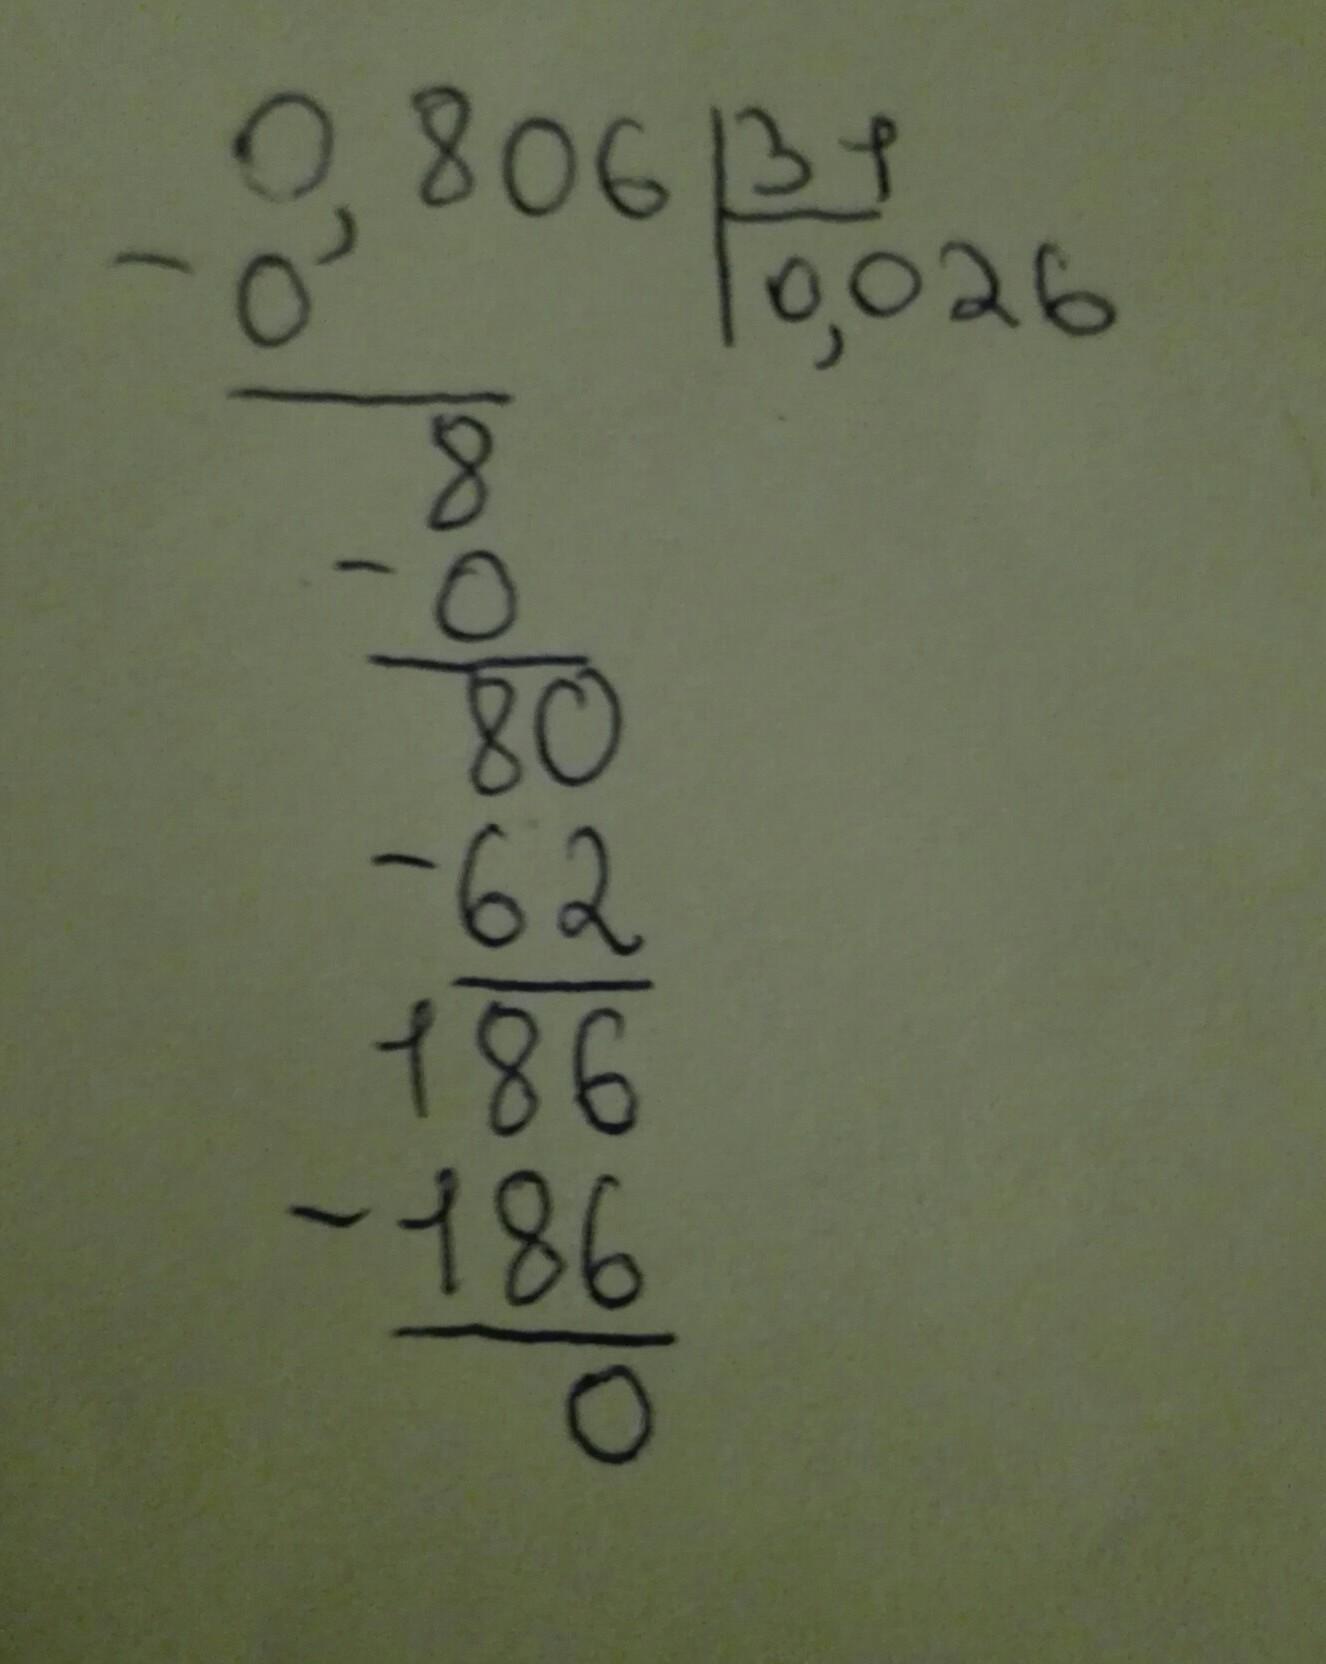 0,806 31
- 0 0,026
8
- 0
80
- 62
186
- 186
0